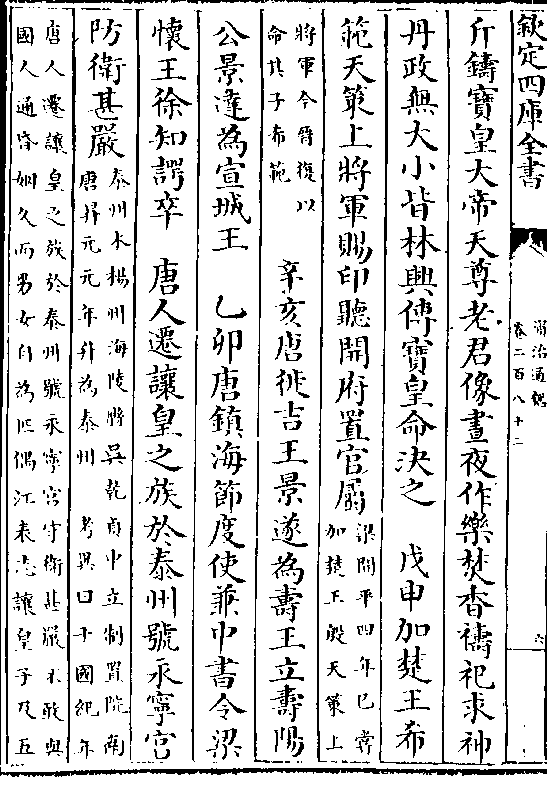 欽定四庫全書
資治通鑑
卷二百八十二
六
斤鑄寶皇大帝天尊老君像晝夜作樂焚香禱祀求神
丹政無大小皆林興傳寶皇命決之　戊申加楚王希
範天策上將軍賜印聽開府置官屬
梁開平四年已嘗
加楚王殷天策上
將軍今晉復以
命其子希範
辛亥唐徙吉王景遂為壽王立壽陽
公景達為宣城王　乙卯唐鎮海節度使兼中書令梁
懷王徐知諤卒　唐人遷讓皇之族於泰州號永寧宮
防衛甚嚴
泰州本楊州海陵縣吳乾貞中立制置院南
唐昇元元年升為泰州　考異曰十國紀年
唐人遷讓皇之族於泰州號永寧宮守衛甚嚴不敢與
國人通昏姻久而男女自為匹偶江表志讓皇子及五